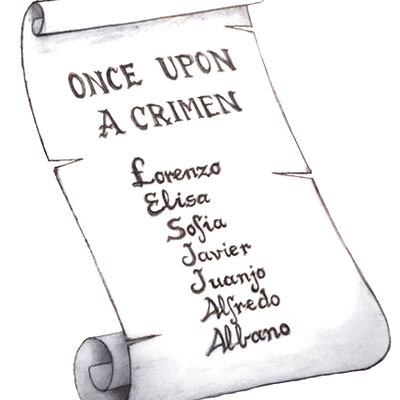 ONCE UPON
A CRIMEN
Lorenzo
Elisa
Sofia
Javier
Juanjo
Alfredo
Albano